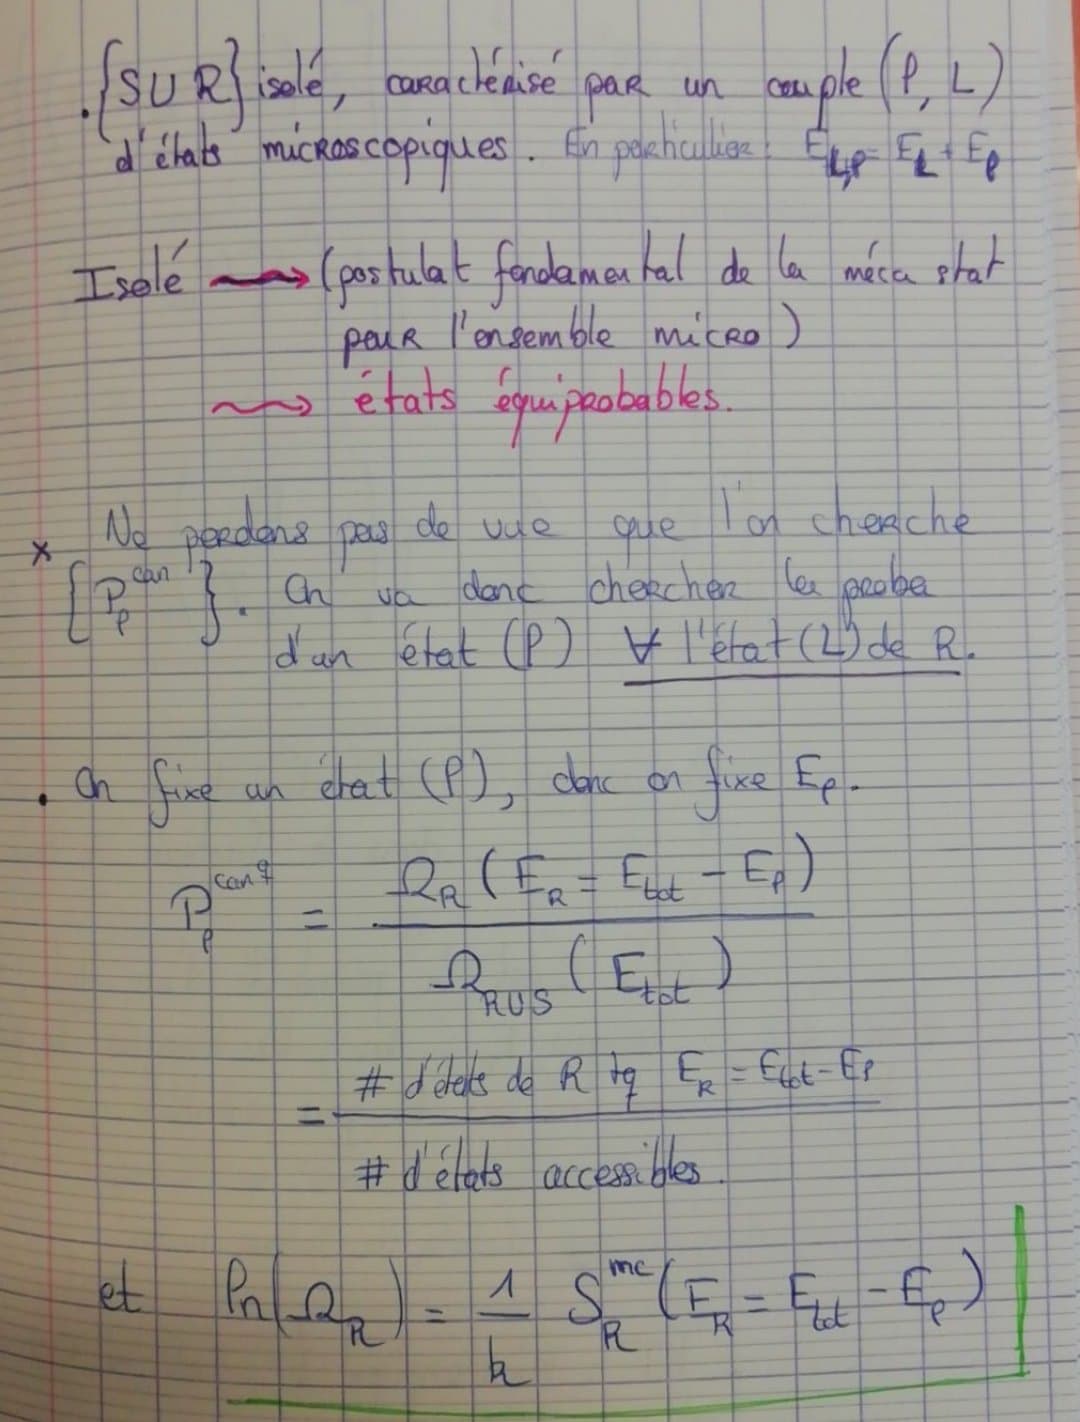 . {S U R} isolé, caractérisé par un couple (P, L)
d'états microscopiques. En particulier : E_{L,P} = E_L + E_P
Isolé ⟶ (postulat fondamental de la méca stat
pour l'ensemble micro)
⟿ états équiprobables.
x Ne perdons pas de vue que l'on cherche
{P_P^{can}}. On va donc chercher la proba
d'un état (P) ∀ l'état (L) de R.
. On fixe un état (P), donc on fixe E_P.
P_P^{can q} = Ω_R (E_R = E_{tot} - E_P) / Ω_{RUS} (E_{tot})
= # d'états de R tq E_R = E_{tot} - E_P / # d'états accessibles.
et ln(Ω_R) = 1/k S_R^{mc} (E_R = E_{tot} - E_P)